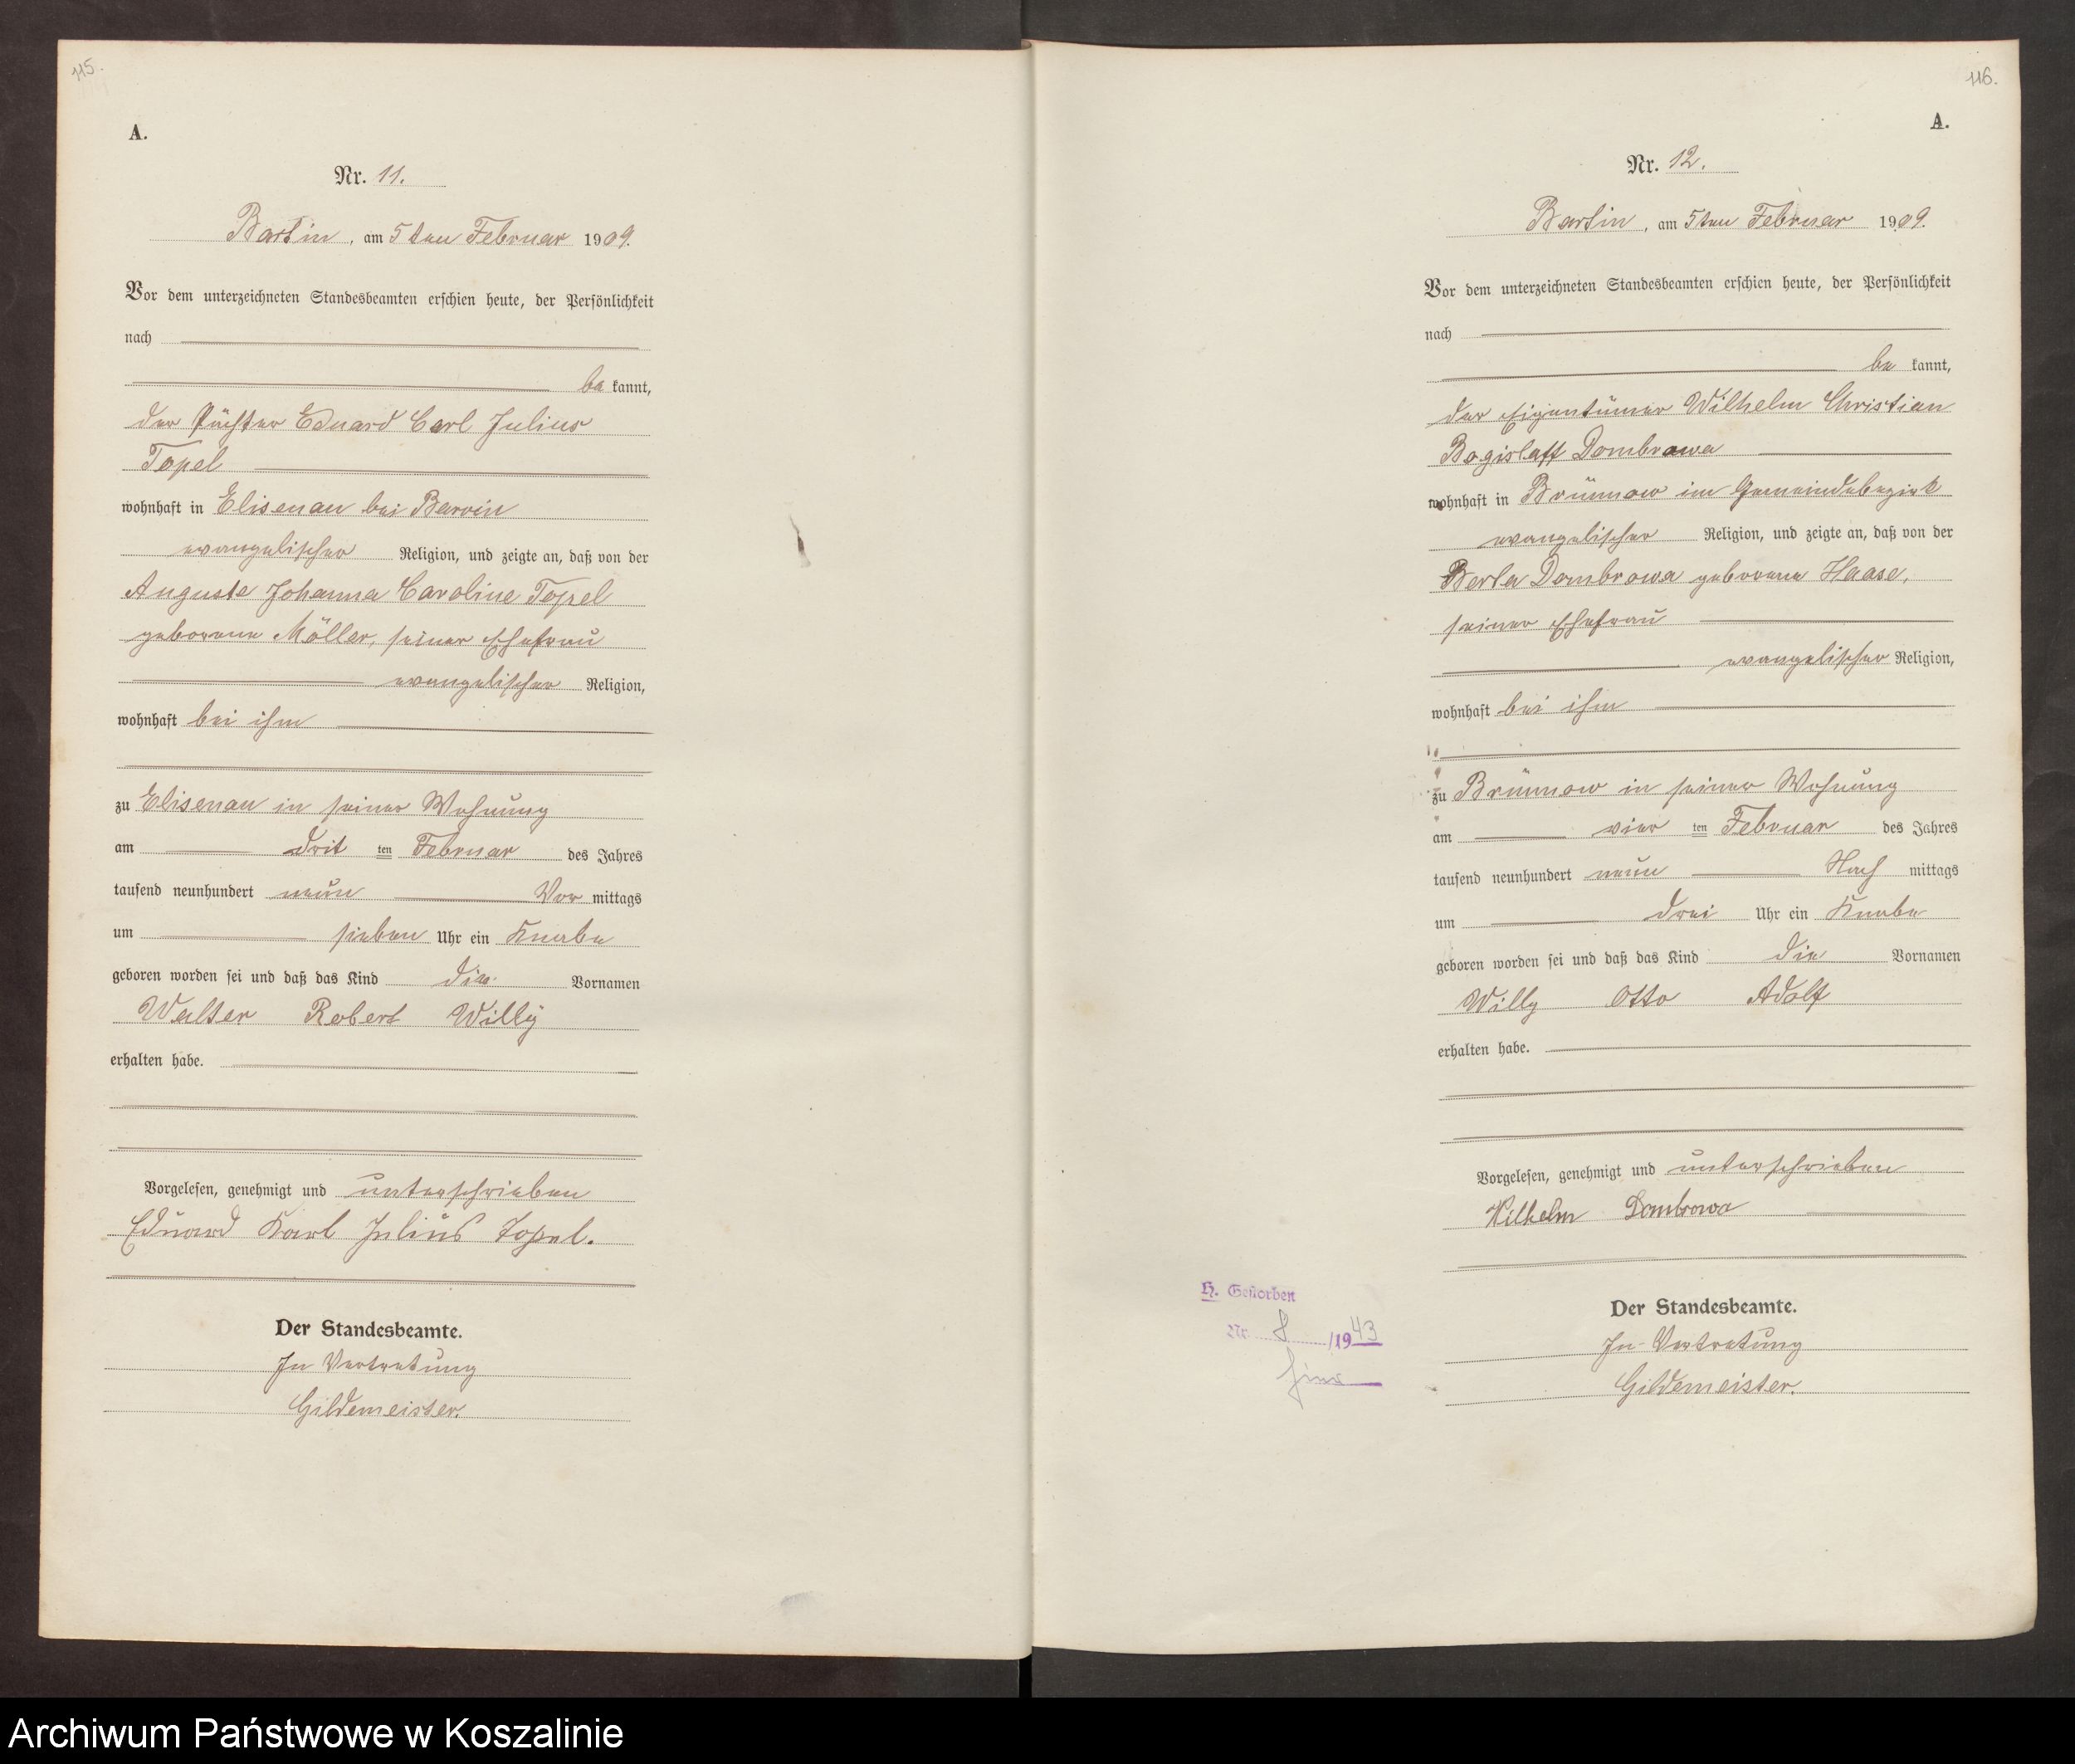 115.
A.
Nr. 11.
Bartin, am 5ten Februar 1909.
Vor dem unterzeichneten Standesbeamten erschien heute, der Persönlichkeit
nach
be kannt,
der Pächter Eduard Carl Julius
Topel
wohnhaft in Elisenau bei Barvin
evangelischer Religion, und zeigte an, daß von der
Auguste Johanna Caroline Topel
geborene Möller, seiner Ehefrau
evangelischer Religion,
wohnhaft bei ihm
zu Elisenau in seiner Wohnung
am drit ten Februar des Jahres
tausend neunhundert neun Vor mittags
um sieben Uhr ein Knabe
geboren worden sei und daß das Kind die Vornamen
Walter Robert Willy
erhalten habe.
Vorgelesen, genehmigt und unterschrieben
Eduard Karl Julius Topel.
Der Standesbeamte.
In Vertretung
Gildemeister.
116.
A.
Nr. 12.
Bartin, am 5ten Februar 1909.
Vor dem unterzeichneten Standesbeamten erschien heute, der Persönlichkeit
nach
be kannt,
der Eigentümer Wilhelm Christian
Bogislaff Dombrowa
wohnhaft in Brünnow im Gemeindebezirk
evangelischer Religion, und zeigte an, daß von der
Berta Dombrowa geborene Haase,
seiner Ehefrau
evangelischer Religion,
wohnhaft bei ihm
zu Brünnow in seiner Wohnung
am vier ten Februar des Jahres
tausend neunhundert neun Nach mittags
um drei Uhr ein Knabe
geboren worden sei und daß das Kind die Vornamen
Willy Otto Adolf
erhalten habe.
Vorgelesen, genehmigt und unterschrieben
Wilhelm Dombrowa
Der Standesbeamte.
In Vertretung
Gildemeister.
H. Gestorben
Nr. 8 /1943
Archiwum Państwowe w Koszalinie